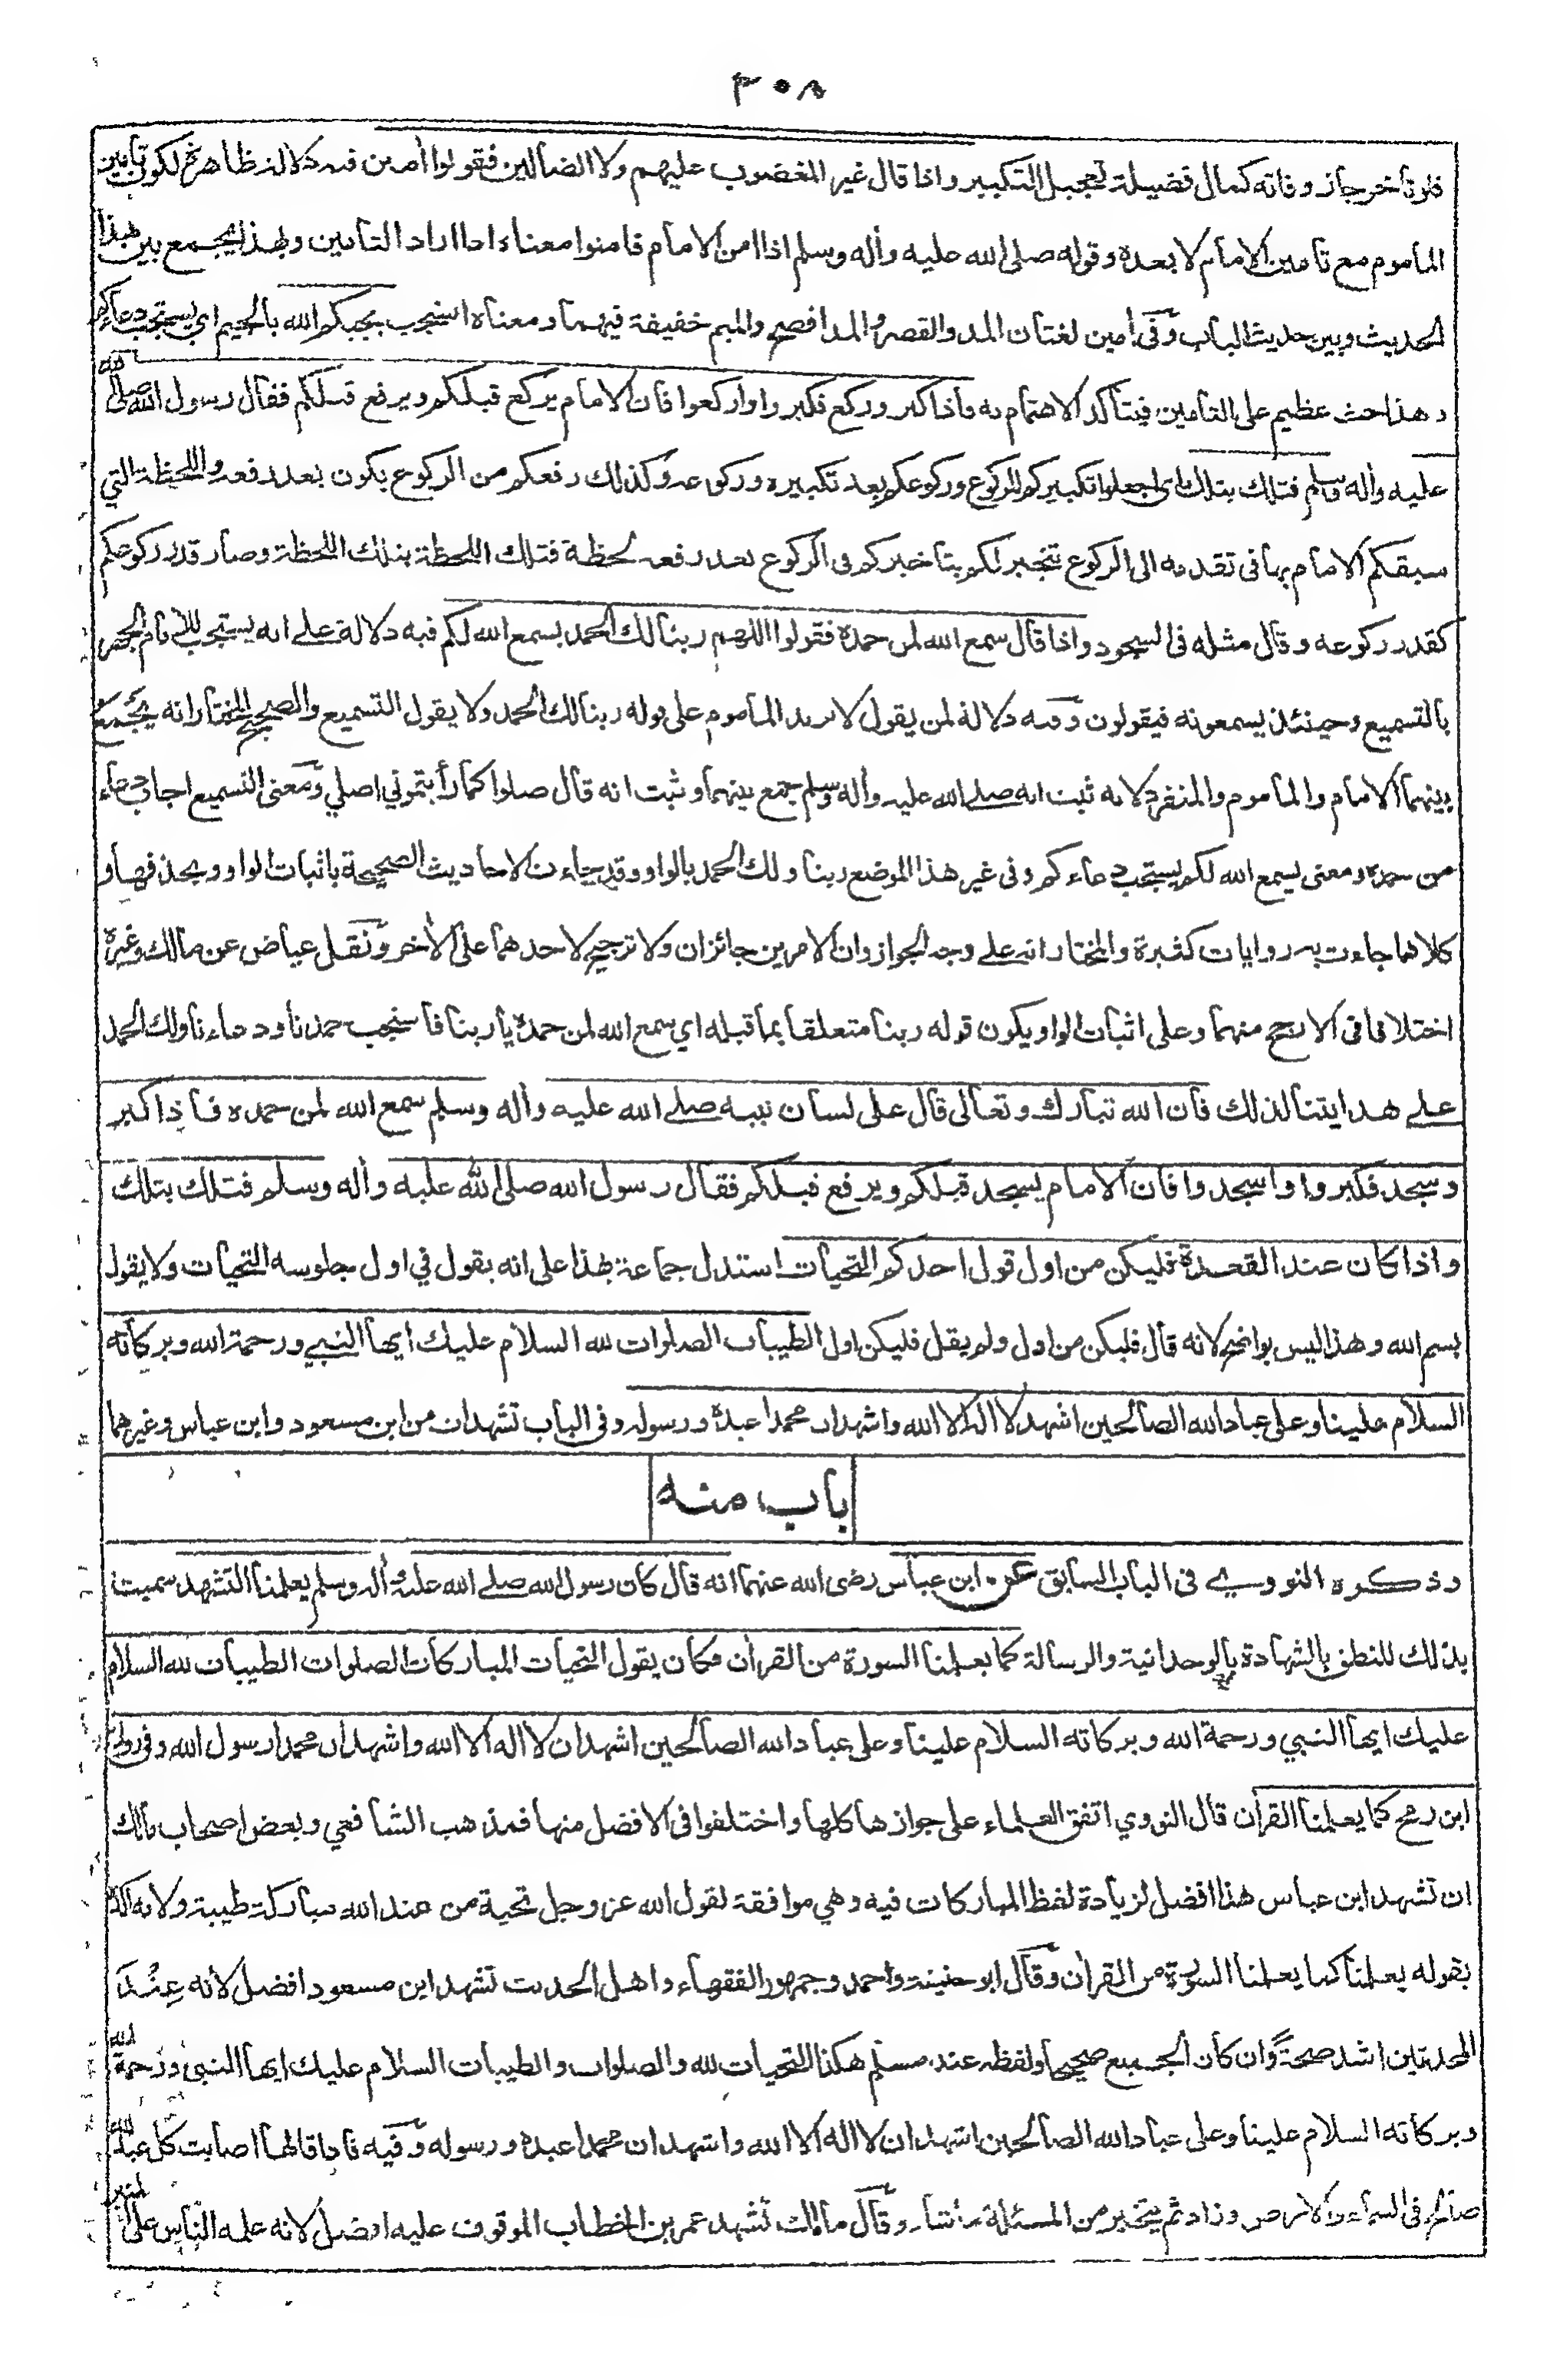 ٣٠٨
فلو تأخر جاز وفاته كمال فضيلة تعجيل التكبير واذا قال غير المغضوب عليهم ولا الضالين فقولوا أمين فيه دلالة ظاهرة لكون تأمين
المأموم مع تأمين الامام لا بعده وقوله صلى الله عليه وأله وسلم اذا امن الامام فامنوا معناه اذا اراد التأمين وبهذا يجمع بين هذا
الحديث وبين حديث الباب وفى أمين لغتان المد والقصر والمد افصح والميم خفيفة فيهما ومعناه استجب يجبكم الله بالجيم اي يستجب دعاءكم
وهذا حث عظيم على التأمين فيتأكد الاهتمام به فأذا كبر وركع فكبروا واركعوا فان الامام يركع قبلكم ويرفع قبلكم فقال رسول الله صلى الله
عليه وأله وسلم فتلك بتلك اى اجعلوا تكبيركم للركوع وركوعكم بعد تكبيره وركوعه وكذلك رفعكم من الركوع يكون بعد رفعه واللحظة التي
سبقكم الامام بها فى تقدمه الى الركوع تنجبر لكم بتأخيركم فى الركوع بعد رفعه لحظة فتلك اللحظة بتلك اللحظة وصار قدر ركوعكم
كقدر ركوعه وقال مثله فى السجود واذا قال سمع الله لمن حمده فقولوا اللهم ربنا لك الحمد يسمع الله لكم فيه دلالة على انه يستحب للامام الجهر
بالتسميع وحينئذ يسمعونه فيقولون وفيه دلالة لمن يقول لا يزيد المأموم على قوله ربنا لك الحمد ولا يقول التسميع والصحيح المختار انه يجمع
بينهما الامام والمأموم والمنفرد لانه ثبت انه صلى الله عليه وأله وسلم جمع بينهما وثبت انه قال صلوا كما رأيتموني اصلي ومعنى التسميع اجاب دعاء
من حمده ومعنى يسمع الله لكم يستجب دعاءكم وفى غير هذا الموضع ربنا ولك الحمد بالواو وقد جاءت الاحاديث الصحيحة باثبات الواو وبحذفها و
كلاهما جاءت به روايات كثيرة والمختار انه على وجه الجواز وان الامرين جائزان ولا ترجيح لاحدهما على الأخر ونقل عياض عن مالك وغيره
اختلافا فى الارجح منهما وعلى اثبات الواو يكون قوله ربنا متعلقا بما قبله اي سمع الله لمن حمده يا ربنا فأستجب حمدنا ودعاءنا ولك الحمد
على هدايتنا لذلك فأن الله تبارك وتعالى قال على لسان نبيه صلى الله عليه وأله وسلم سمع الله لمن حمده فأذا كبر
وسجد فكبروا واسجدوا فان الامام يسجد قبلكم ويرفع قبلكم فقال رسول الله صلى الله عليه وأله وسلم فتلك بتلك
واذا كان عند القعدة فليكن من اول قول احدكم التحيات استدل جماعة بهذا على انه يقول في اول جلوسه التحيات ولا يقول
بسم الله وهذا ليس بواضح لانه قال فليكن من اول ولم يقل فليكن اول الطيبات الصلوات لله السلام عليك ايها النبي ورحمة الله وبركاته
السلام علينا وعلى عباد الله الصالحين اشهد لا اله الا الله واشهد ان محمدا عبده ورسوله وفى الباب تشهدان من ابن مسعود وابن عباس وغيرهما
باب منه
وذكره النووي فى الباب السابق عن ابن عباس رضى الله عنهما انه قال كان رسول الله صلى الله عليه وأله وسلم يعلمنا التشهد سميت
بذلك للنطق بالشهادة بالوحدانية والرسالة كما يعلمنا السورة من القران فكان يقول التحيات المباركات الصلوات الطيبات لله السلام
عليك ايها النبي ورحمة الله وبركاته السلام علينا وعلى عباد الله الصالحين اشهد ان لا اله الا الله واشهد ان محمدا رسول الله وفى رواية
ابن رمح كما يعلمنا القرأن قال النووي اتفق العلماء على جوازها كلها واختلفوا فى الافضل منها فمذهب الشافعي وبعض اصحاب مالك
ان تشهد ابن عباس هذا افضل لزيادة لفظ المباركات فيه وهي موافقة لقول الله عز وجل تحية من عند الله مباركة طيبة ولانه اكده
بقوله يعلمنا كما يعلمنا السورة من القران وقال ابو حنيفة واحمد وجمهور الفقهاء واهل الحديث تشهد ابن مسعود افضل لأنه عند
المحدثين اشد صحة وان كان الجميع صحيحا ولفظه عند مسلم هكذا التحيات لله والصلوات والطيبات السلام عليك ايها النبى ورحمة الله
وبركاته السلام علينا وعلى عباد الله الصالحين اشهد ان لا اله الا الله واشهد ان محمدا عبده ورسوله وفيه فاذا قالها اصابت كل عبد لله
صالح فى السماء والارض وزاد ثم يتخير من المسئلة ما شاء وقال مالك تشهد عمر بن الخطاب الموقوف عليه افضل لانه علمه الناس على المنبر